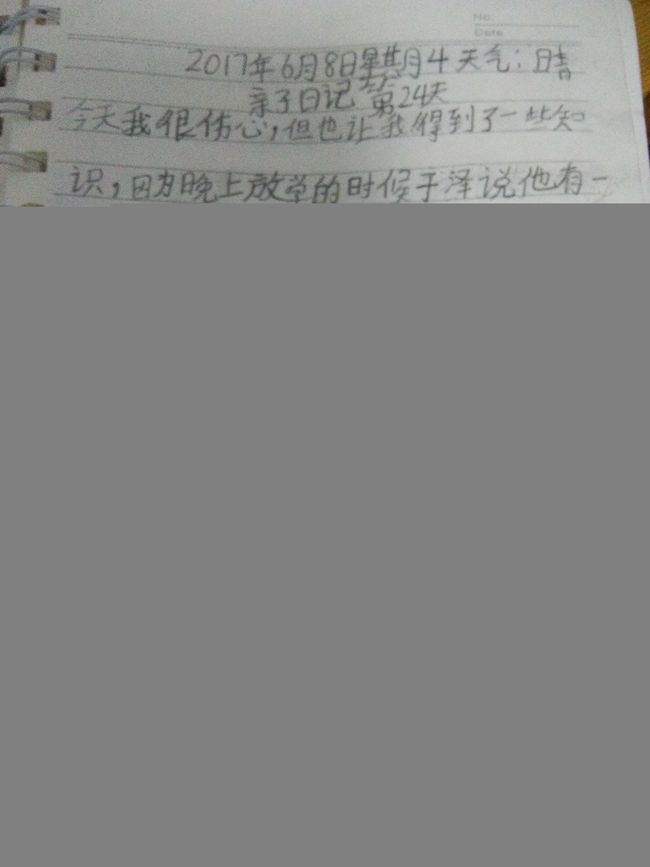 No.
Date
2017年6月8日星期4 天气:晴
亲子日记 第24天
今天我很伤心,但也让我得到了一些知
识,因为晚上放学的时候于泽说他有一